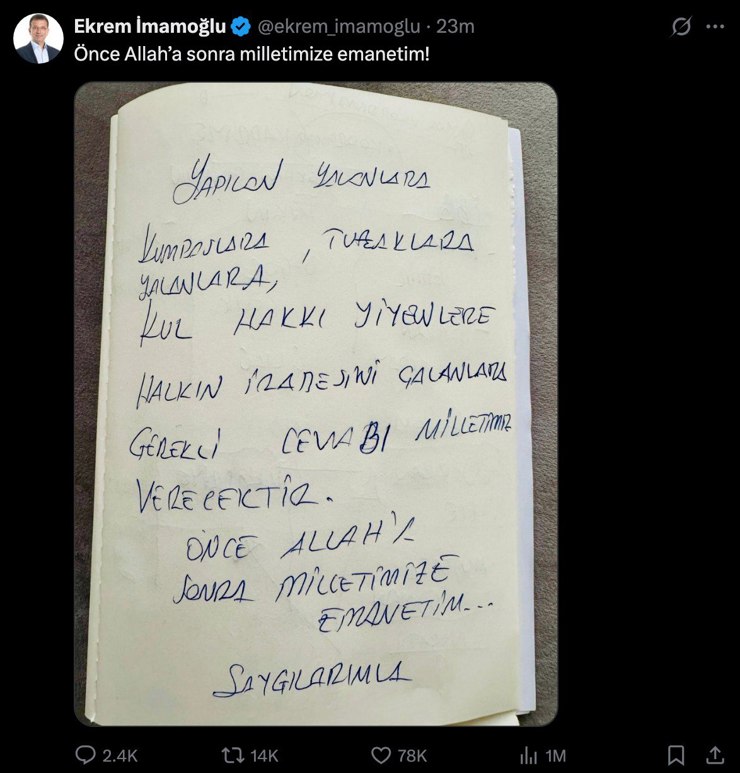 Ekrem İmamoğlu @ekrem_imamoglu · 23m
Önce Allah'a sonra milletimize emanetim!
YAPILAN YALANLARA
KUMPASLARA, TUZAKLARA
YALANLARA,
KUL HAKKI YİYENLERE
HALKIN İRADESİNİ ÇALANLARA
GEREKLİ CEVABI MİLLETİMİZ
VERECEKTİR.
ÖNCE ALLAH'A
SONRA MİLLETİMİZE
EMANETİM...
SAYGILARIMLA
2.4K 14K 78K 1M